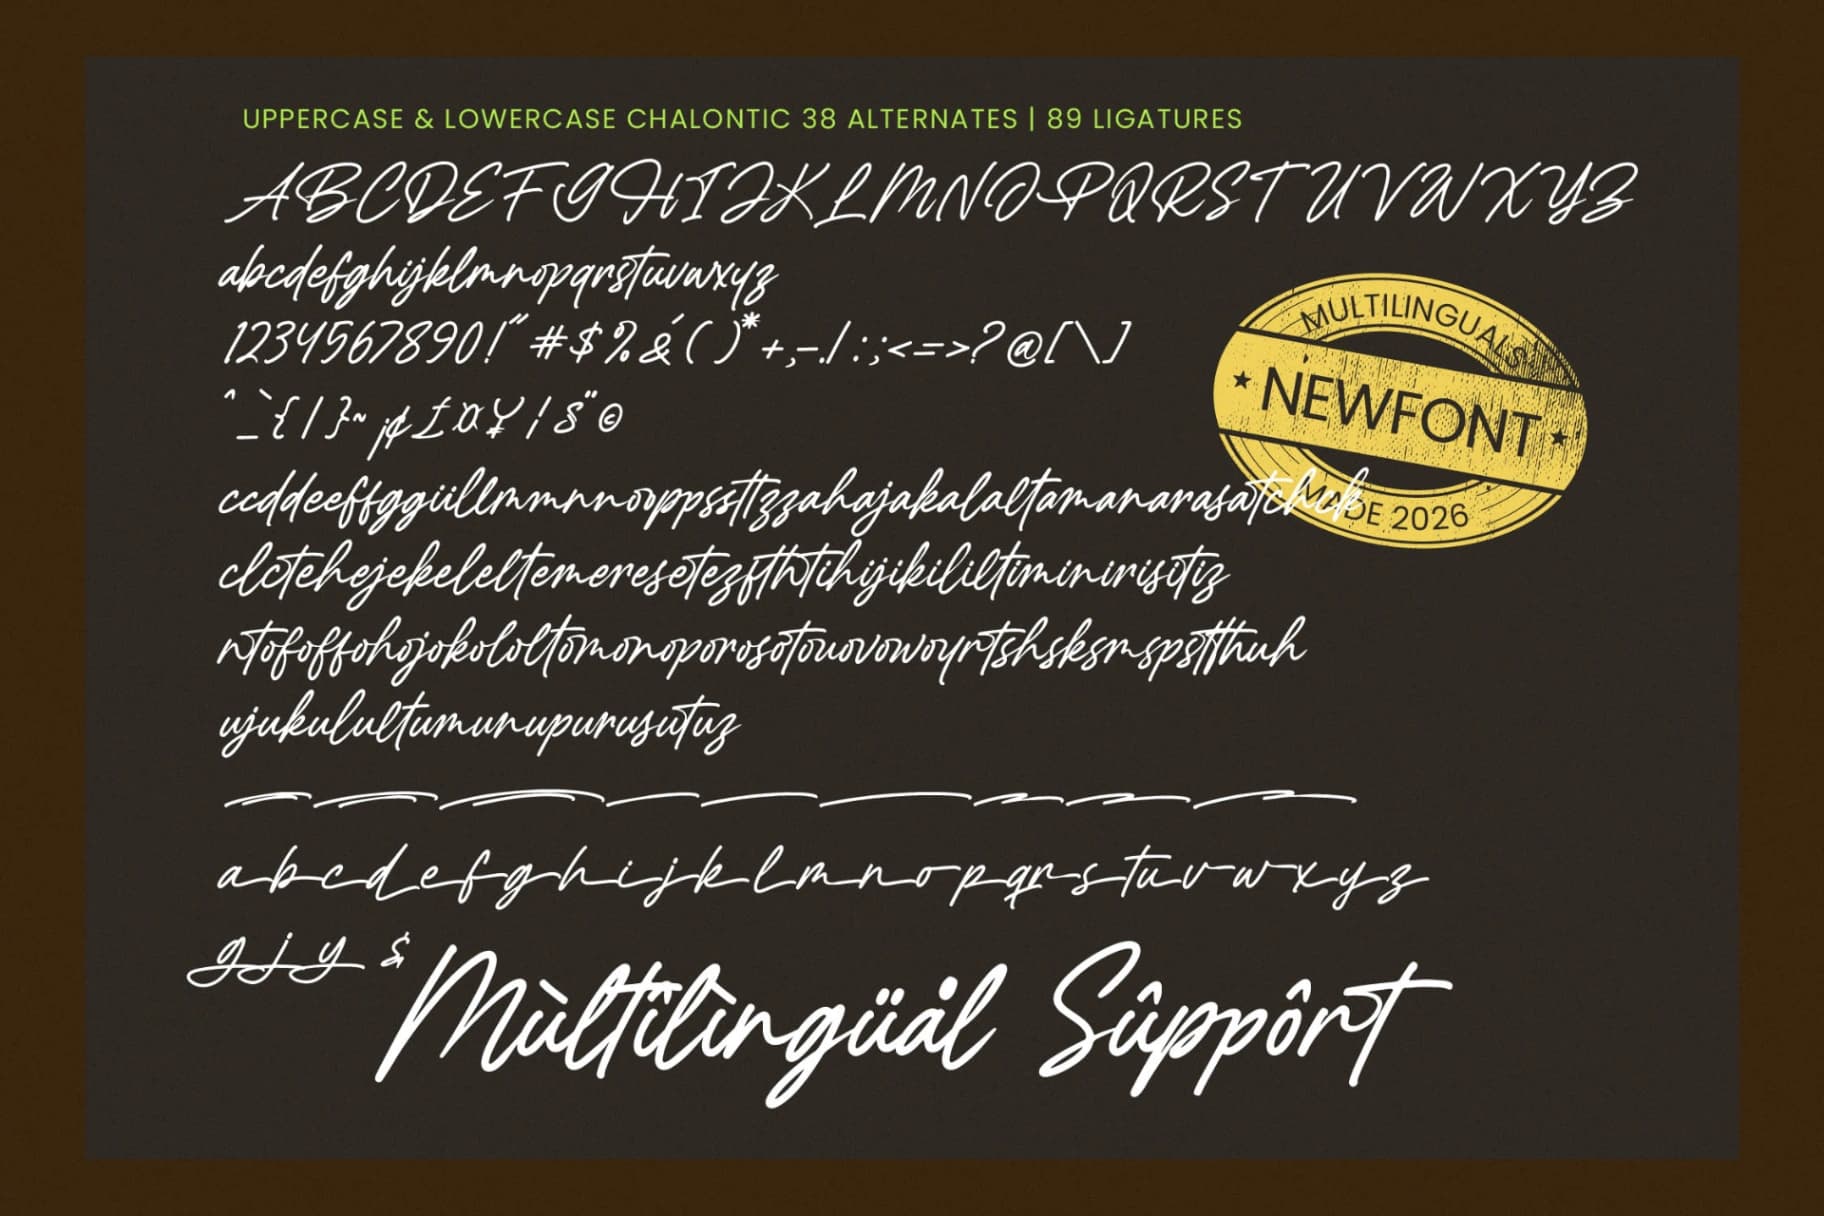 UPPERCASE & LOWERCASE CHALONTIC 38 ALTERNATES | 89 LIGATURES
ABCDEFGHIJKLMNOPQRSTUVWXYZ
abcdefghijklmnopqrstuvwxyz
1234567890!"#$%&´()*+,-./:;<=>?@[\]
^_`{|}~¡¢£¤¥¦§¨©
MULTILINGUALS
★ NEWFONT ★
MADE 2026
ccddeeffggiillmmnnooppssttzzahajakalaltamanarasatchck
clctehejekeleltemeresetezfthtihijikililtiminirisitiz
ntofoffohojokololtomonoporosotouovowoyrtshsksmspsttthuh
ujukulultumunupurusutuz
abcdefghijklmnopqrstuvwxyz
gjy &
Mùltïlìngüål Sûppôrt